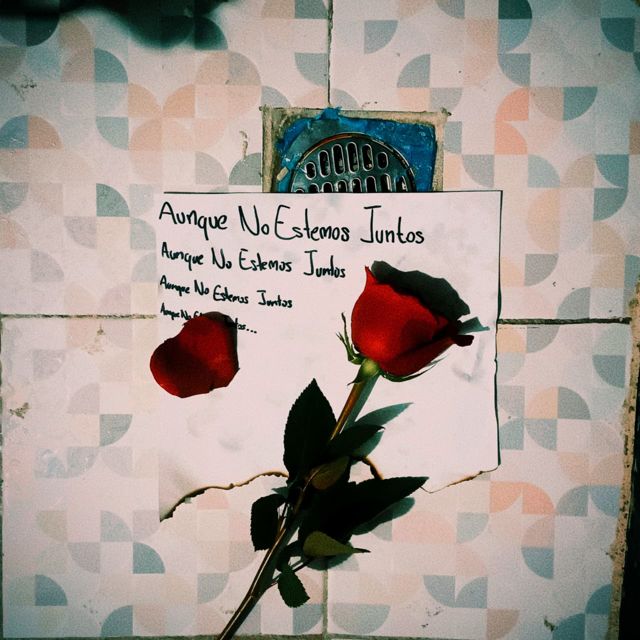 Aunque No Estemos Juntos
Aunque No Estemos Juntos
Aunque No Estemos Juntos
Aunque No